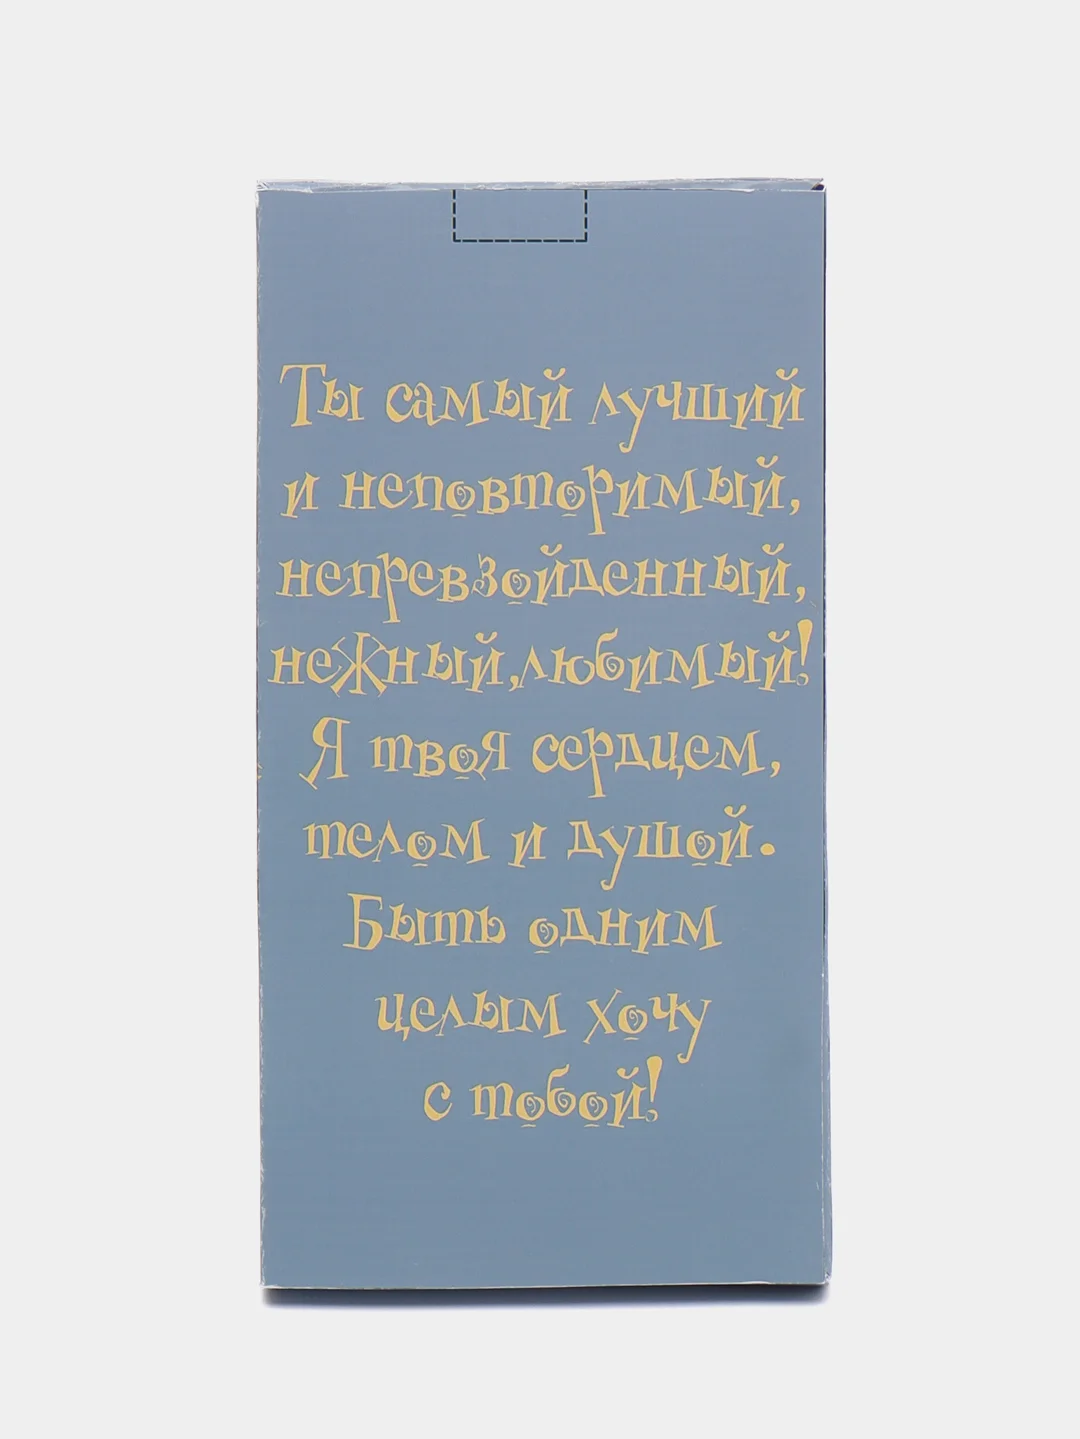 Ты самый лучший
и неповторимый,
непревзойденный,
нежный,любимый!
Я твоя сердцем,
телом и душой.
Быть одним
целым хочу
с тобой!